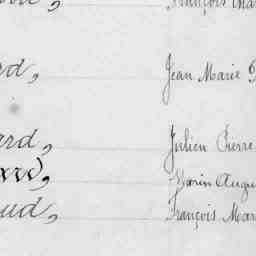 François Mar
rd, Jean Marie
ard, Julien Pierre
Marin Augu
aud, François Mar